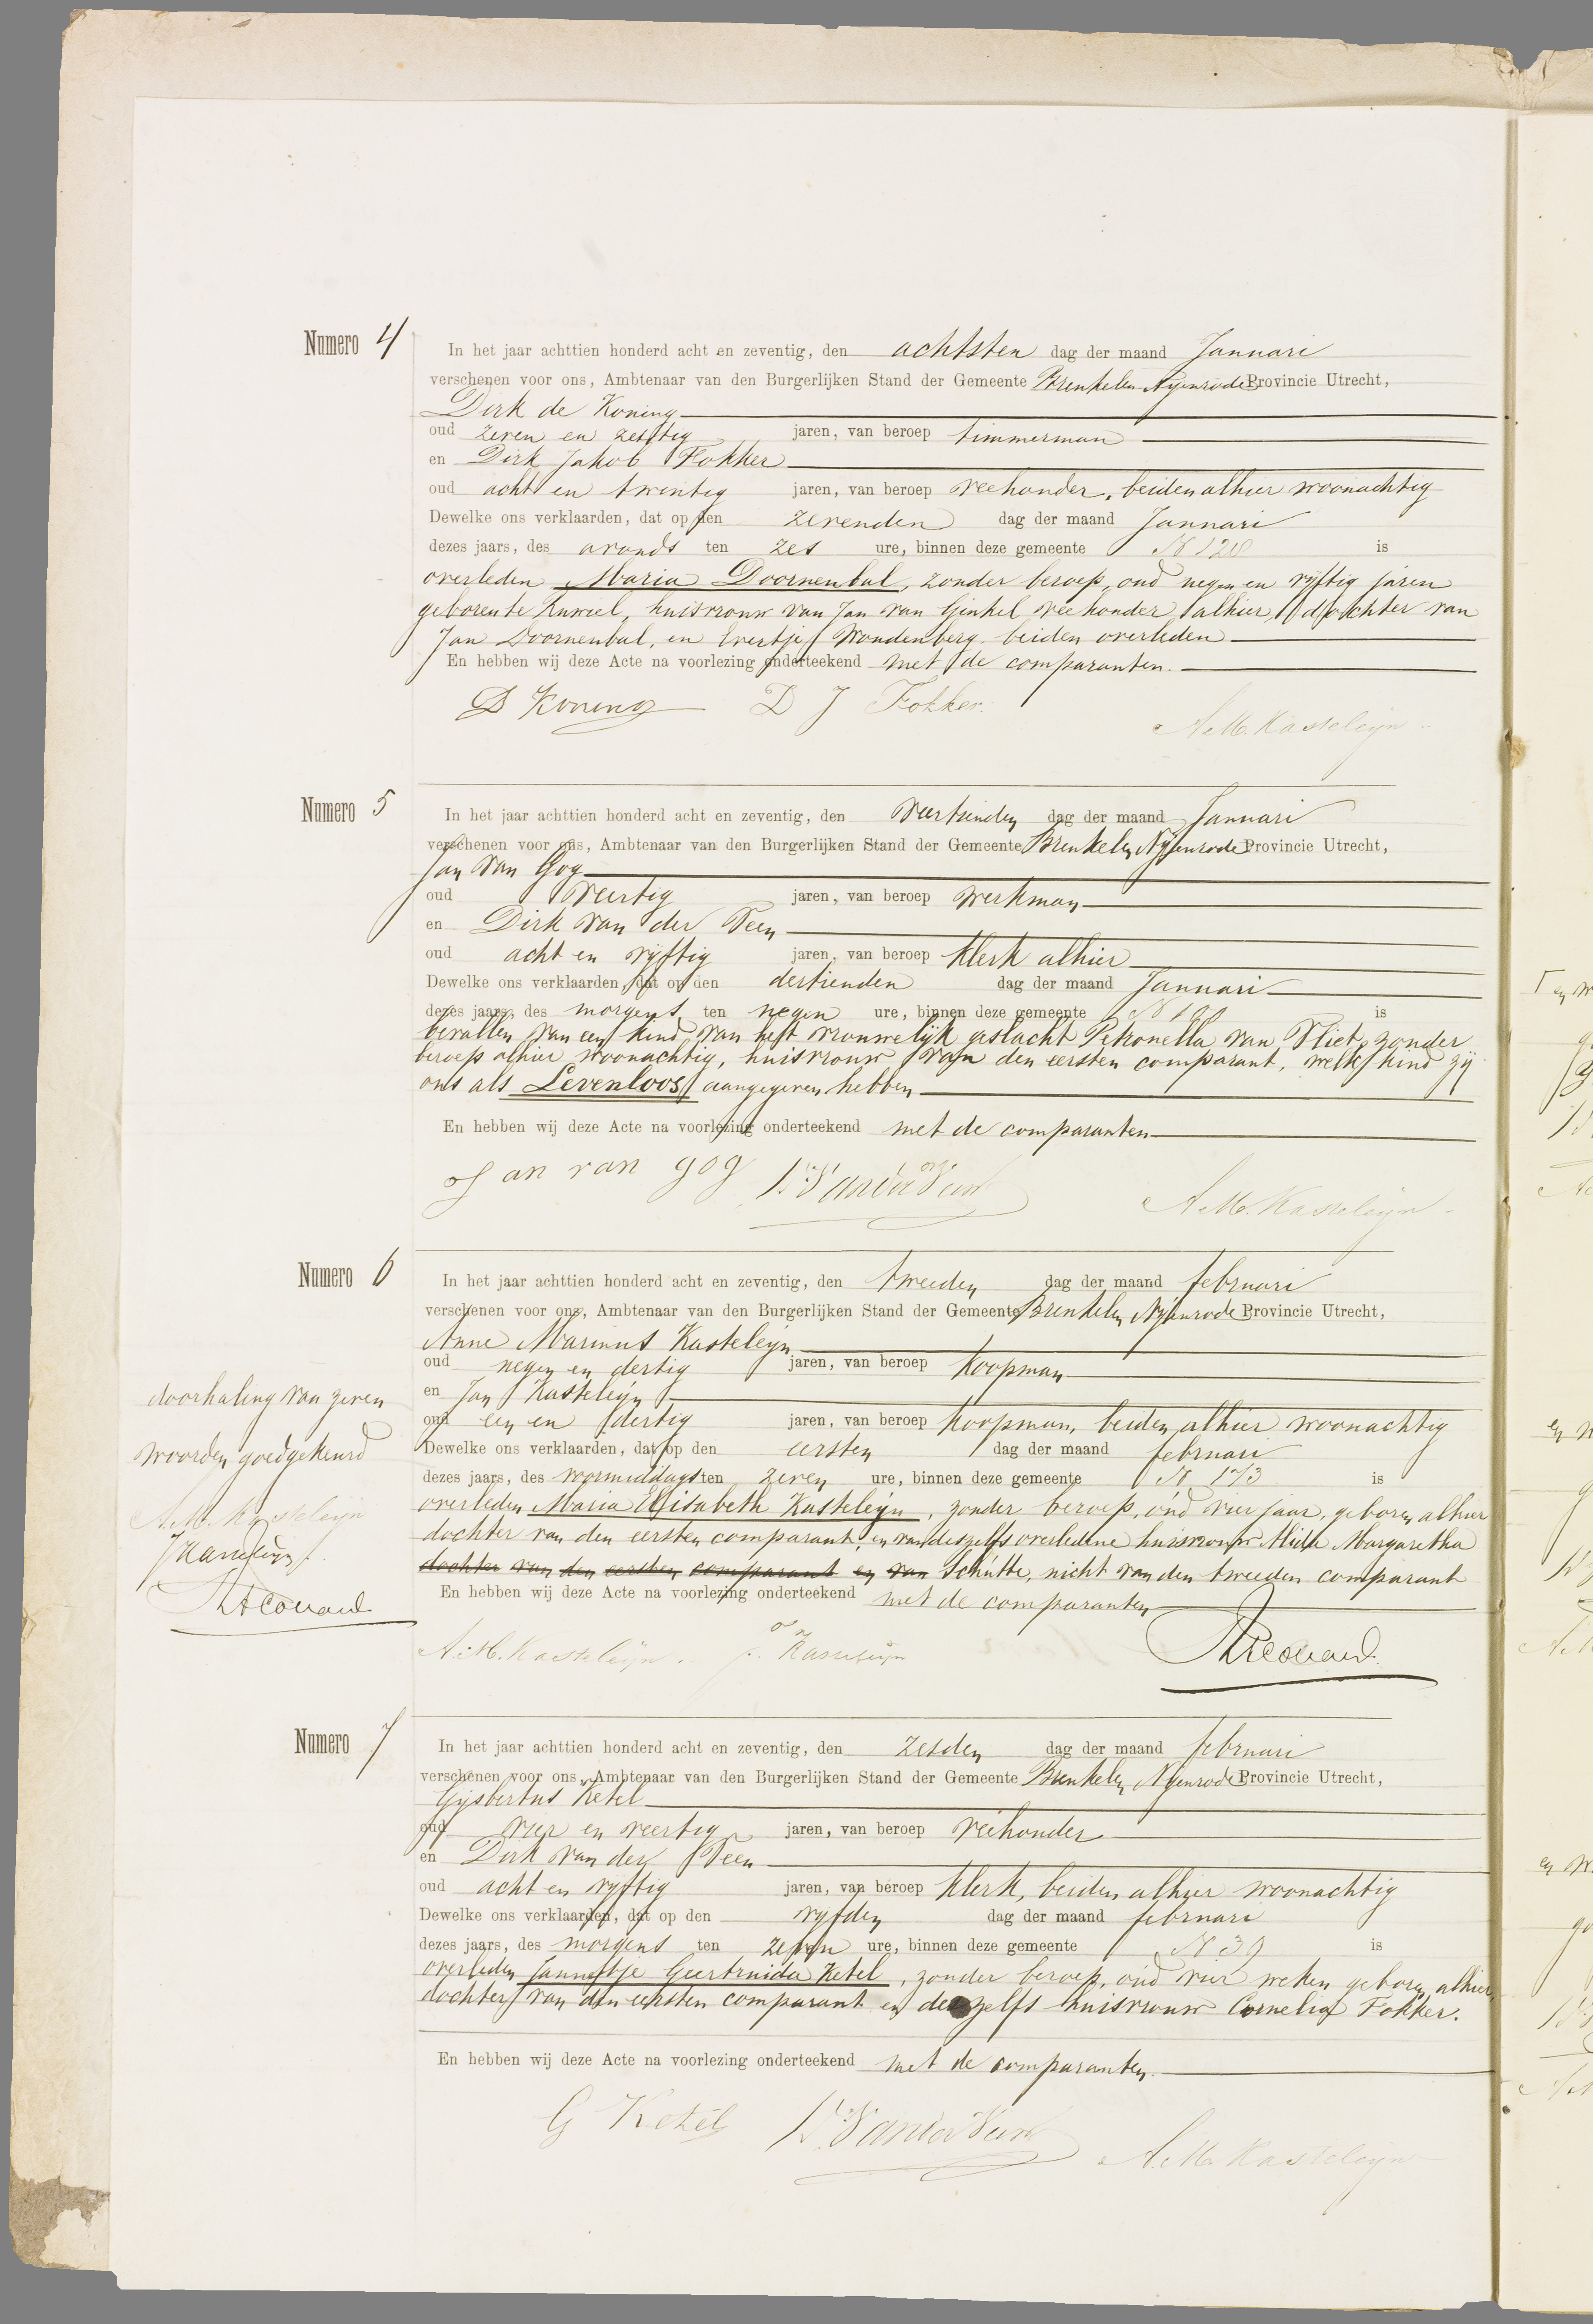 Numero 4
In het jaar achttien honderd acht en zeventig, den achtsten dag der maand Januari
verschenen voor ons, Ambtenaar van den Burgerlijken Stand der Gemeente Breukelen Nijenrode Provincie Utrecht,
Dirk de Koning
oud zeven en zestig jaren, van beroep timmerman
en Dirk Jakob Fokker
oud acht en twintig jaren, van beroep veehouder, beiden alhier woonachtig
Dewelke ons verklaarden, dat op den zevenden dag der maand Januari
dezes jaars, des avonds ten zes ure, binnen deze gemeente N 128 is
overleden Maria Doornenbal, zonder beroep, oud negen en vijftig jaren
geboren te huisvrouw van Jan van Ginkel veehouder alhier, dochter van
Jan Doornenbal, en Evertje Woudenberg beiden overleden
En hebben wij deze Acte na voorlezing onderteekend met de comparanten.
D Koning D J Fokker
A. M. Kasteleijn
Numero 5
In het jaar achttien honderd acht en zeventig, den veertienden dag der maand Januari
verschenen voor ons, Ambtenaar van den Burgerlijken Stand der Gemeente Breukelen Nijenrode Provincie Utrecht,
Jan van Gog
oud veertig jaren, van beroep werkman
en Dirk van der Veen
oud acht en vijftig jaren, van beroep klerk alhier
Dewelke ons verklaarden, dat op den dertienden dag der maand Januari
dezes jaars, des morgens ten negen ure, binnen deze gemeente is
bevallen van een kind van het vrouwelijk geslacht Petronella van Vliet, zonder
beroep alhier woonachtig, huisvrouw van den eersten comparant, welk kind zij
ons als Levenloos aangegeven hebben
En hebben wij deze Acte na voorlezing onderteekend met de comparanten
Jan van gog D. Van der Veen
A. M. Kasteleijn
Numero 6
In het jaar achttien honderd acht en zeventig, den tweeden dag der maand februari
verschenen voor ons, Ambtenaar van den Burgerlijken Stand der Gemeente Breukelen Nijenrode Provincie Utrecht,
Anne Marinus Kasteleijn
oud negen en dertig jaren, van beroep koopman
en Jan Kasteleijn
oud een en dertig jaren, van beroep koopman, beiden alhier woonachtig
Dewelke ons verklaarden, dat op den eersten dag der maand februari
dezes jaars, des voormiddags ten zeven ure, binnen deze gemeente N 173 is
overleden Maria Elisabeth Kasteleijn, zonder beroep, oud vier jaar, geboren alhier
dochter van den eersten comparant, en van deszelfs overledene huisvrouw Alida Margaretha
dochter van den eersten comparant en van Schutte, nicht van den tweeden comparant
En hebben wij deze Acte na voorlezing onderteekend met de comparanten
A. M. Kasteleijn J. Kasteleijn
doorhaling van zeven
woorden goedgekeurd
A. M. Kasteleijn
J Kasteleijn
Numero 7
In het jaar achttien honderd acht en zeventig, den zesden dag der maand februari
verschenen voor ons, Ambtenaar van den Burgerlijken Stand der Gemeente Breukelen Nijenrode Provincie Utrecht,
Gijsbertus Ketel
oud vier en veertig jaren, van beroep veehouder
en Dirk van der Veen
oud acht en vijftig jaren, van beroep klerk, beiden alhier woonachtig
Dewelke ons verklaarden, dat op den vijfden dag der maand februari
dezes jaars, des morgens ten zeven ure, binnen deze gemeente N 39 is
overleden Jannetje Geertruida Ketel, zonder beroep, oud vier weken geboren alhier,
dochter van den eersten comparant en deszelfs huisvrouw Cornelia Fokker.
En hebben wij deze Acte na voorlezing onderteekend met de comparanten
G Ketel D. Van der Veen
A. M. Kasteleijn